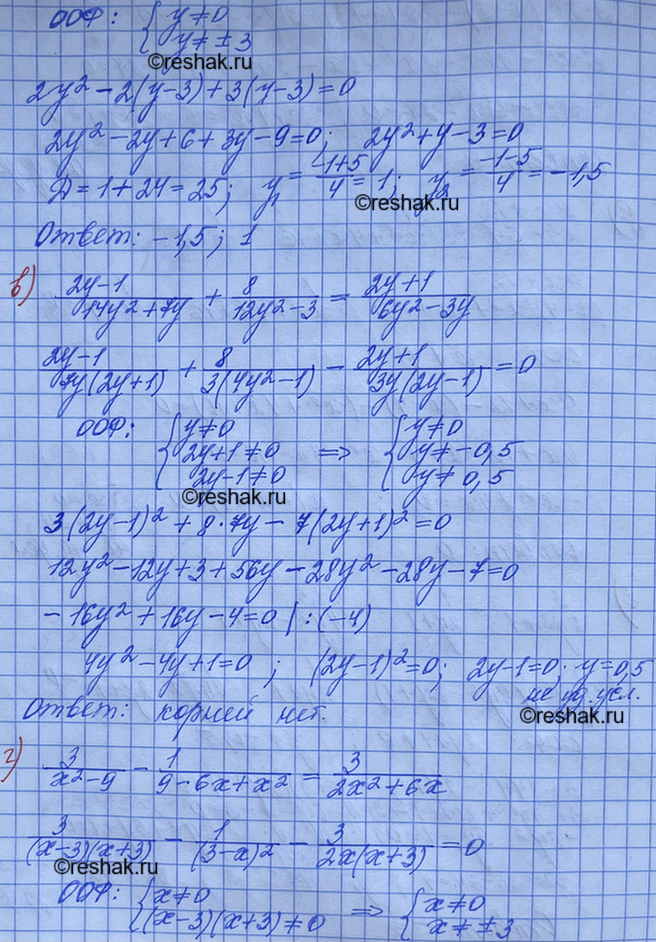 ООФ: { y≠0
y≠±3
©reshak.ru
2y² – 2(y–3) + 3(y–3) = 0
2y² – 2y + 6 + 3y – 9 = 0; 2y² + y – 3 = 0
Д = 1 + 24 = 25; y₁ = (–1+5)/4 = 1; y₂ = (–1–5)/4 = –1,5
©reshak.ru
Ответ: –1,5; 1
в) (2y–1)/(14y²+7y) + 8/(12y²–3) = (2y+1)/(6y²–3y)
(2y–1)/(7y(2y+1)) + 8/(3(4y²–1)) – (2y+1)/(3y(2y–1)) = 0
ООФ: { y≠0 ⇒ { y≠0
2y+1≠0 y≠–0,5
2y–1≠0 y≠0,5
©reshak.ru
3(2y–1)² + 8·7y – 7(2y+1)² = 0
12y² – 12y + 3 + 56y – 28y² – 28y – 7 = 0
–16y² + 16y – 4 = 0 | : (–4)
4y² – 4y + 1 = 0; (2y–1)² = 0; 2y–1 = 0; y = 0,5
не уд. усл.
©reshak.ru
Ответ: корней нет.
г) 3/(x²–9) – 1/(9–6x+x²) = 3/(2x²+6x)
3/((x–3)(x+3)) – 1/(3–x)² – 3/(2x(x+3)) = 0
©reshak.ru
ООФ: { x≠0 ⇒ { x≠0
(x–3)(x+3)≠0 x≠±3